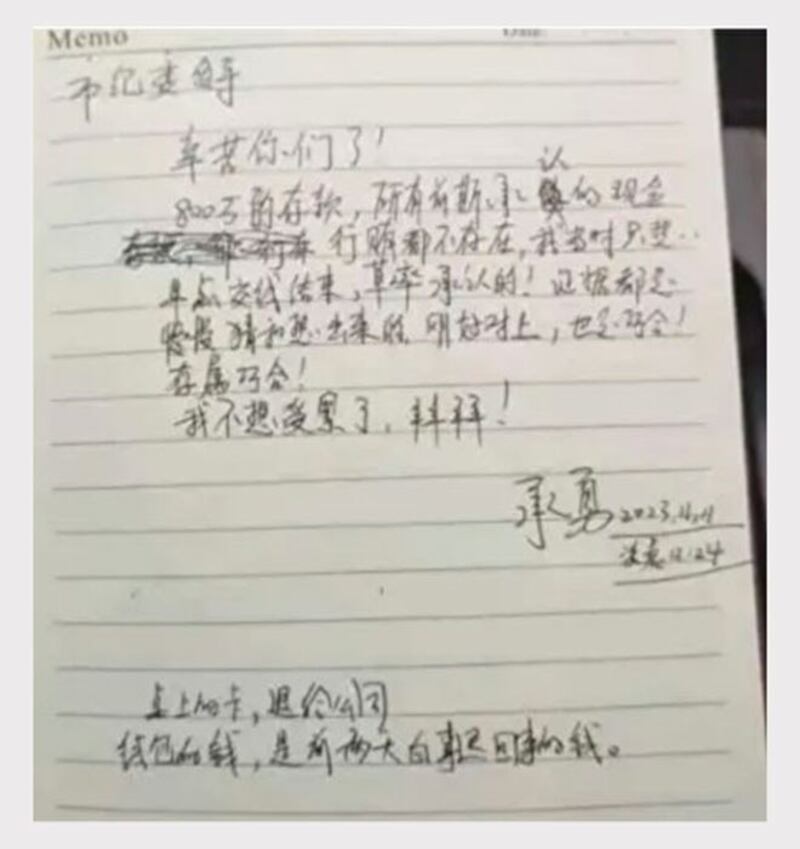 Memo
Date
市纪委领导
辛苦你们了！
认
800万的存款，所有前期承 的现金
行贿都不存在，我当时只想
早点交线结束，草率承认的！证据都是
猜和想出来的，刚好对上，也是巧合！
存属巧合！
我不想受累了，拜拜！
承勇 2023.11.11
凌晨12:24
桌上的卡，退给公司
钱包的钱，是前两天白事还回来的钱。